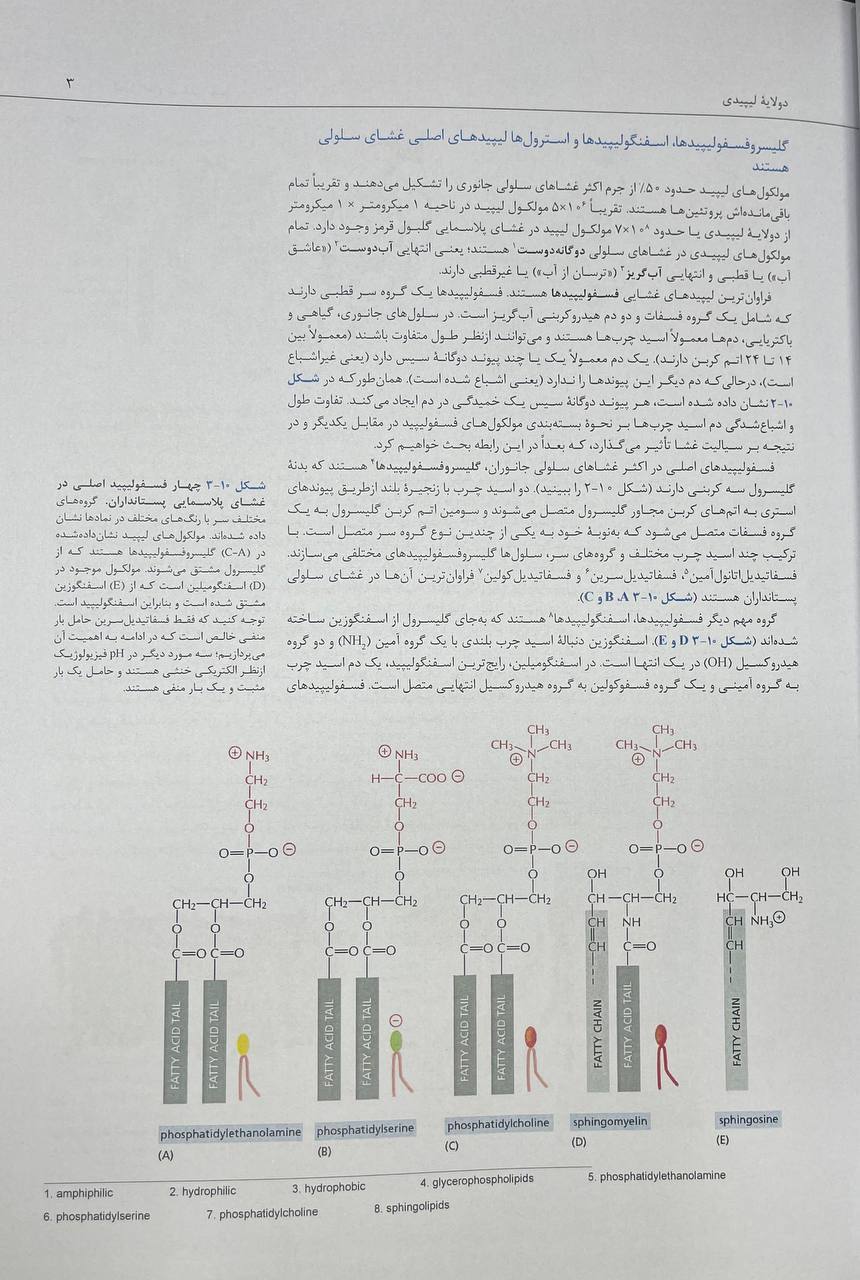 ۳
دولایهٔ لیپیدی
گلیسروفسفولیپیدها، اسفنگولیپیدها و استرول‌ها لیپیدهای اصلی غشای سلولی
هستند
مولکول‌های لیپید حدود ۵۰٪ از جرم اکثر غشاهای سلولی جانوری را تشکیل می‌دهند و تقریباً تمام
باقی‌مانده‌اش پروتئین‌ها هستند. تقریباً ۵×۱۰۶ مولکول لیپید در ناحیه ۱ میکرومتر × ۱ میکرومتر
از دولایهٔ لیپیدی یا حدود ۷×۱۰۸ مولکول لیپید در غشای پلاسمایی گلبول قرمز وجود دارد. تمام
مولکول‌های لیپیدی در غشاهای سلولی دوگانه‌دوست۱ هستند؛ یعنی انتهایی آب‌دوست۲ («عاشق
آب») یا قطبی و انتهایی آب‌گریز۳ («ترسان از آب») یا غیرقطبی دارند.
فراوان‌ترین لیپیدهای غشایی فسفولیپیدها هستند. فسفولیپیدها یک گروه سر قطبی دارند
که شامل یک گروه فسفات و دو دم هیدروکربنی آب‌گریز است. در سلول‌های جانوری، گیاهی و
باکتریایی، دم‌ها معمولاً اسید چرب‌ها هستند و می‌توانند ازنظر طول متفاوت باشند (معمولاً بین
۱۴ تا ۲۴ اتم کربن دارند). یک دم معمولاً یک یا چند پیوند دوگانهٔ سیس دارد (یعنی غیراشباع
است)، درحالی‌که دم دیگر این پیوندها را ندارد (یعنی اشباع شده است). همان‌طورکه در شکل
۱۰-۲ نشان داده شده است، هر پیوند دوگانهٔ سیس یک خمیدگی در دم ایجاد می‌کند. تفاوت طول
و اشباع‌شدگی دم اسید چرب‌ها بر نحوهٔ بسته‌بندی مولکول‌های فسفولیپید در مقابل یکدیگر و در
نتیجه بر سیالیت غشا تأثیر می‌گذارد، که بعداً در این رابطه بحث خواهیم کرد.
فسفولیپیدهای اصلی در اکثر غشاهای سلولی جانوران، گلیسروفسفولیپیدها۴ هستند که بدنهٔ
گلیسرول سه کربنی دارند (شکل ۱۰-۲ را ببینید). دو اسید چرب با زنجیرهٔ بلند ازطریق پیوندهای
استری به اتم‌های کربن مجاور گلیسرول متصل می‌شوند و سومین اتم کربن گلیسرول به یک
گروه فسفات متصل می‌شود که به‌نوبهٔ خود به یکی از چندین نوع گروه سر متصل است. با
ترکیب چند اسید چرب مختلف و گروه‌های سر، سلول‌ها گلیسروفسفولیپیدهای مختلفی می‌سازند.
فسفاتیدیل‌اتانول‌آمین۵، فسفاتیدیل‌سرین۶ و فسفاتیدیل‌کولین۷ فراوان‌ترین آن‌ها در غشای سلولی
پستانداران هستند (شکل ۱۰-۳ A، B و C).
گروه مهم دیگر فسفولیپیدها، اسفنگولیپیدها۸ هستند که به‌جای گلیسرول از اسفنگوزین ساخته
شده‌اند (شکل ۱۰-۳ D و E). اسفنگوزین دنبالهٔ اسید چرب بلندی با یک گروه آمین (NH2) و دو گروه
هیدروکسیل (OH) در یک انتها است. در اسفنگومیلین، رایج‌ترین اسفنگولیپید، یک دم اسید چرب
به گروه آمینی و یک گروه فسفوکولین به گروه هیدروکسیل انتهایی متصل است. فسفولیپیدهای
شکل ۱۰-۳ چهار فسفولیپید اصلی در
غشای پلاسمایی پستانداران. گروه‌های
مختلف سر با رنگ‌های مختلف در نمادها نشان
داده شده‌اند. مولکول‌های لیپید نشان‌داده‌شده
در (A-C) گلیسروفسفولیپیدها هستند که از
گلیسرول مشتق می‌شوند. مولکول موجود در
(D) اسفنگومیلین است که از (E) اسفنگوزین
مشتق شده است و بنابراین اسفنگولیپید است.
توجه کنید که فقط فسفاتیدیل‌سرین حامل بار
منفی خالص است که در ادامه به اهمیت آن
می‌پردازیم؛ سه مورد دیگر در pH فیزیولوژیک
ازنظر الکتریکی خنثی هستند و حامل یک بار
مثبت و یک بار منفی هستند.
⊕ NH3
CH2
CH2
O
O=P—O ⊖
O
CH2—CH—CH2
O O
C=O C=O
FATTY ACID TAIL
FATTY ACID TAIL
phosphatidylethanolamine
(A)
⊕ NH3
H—C—COO ⊖
CH2
O
O=P—O ⊖
O
CH2—CH—CH2
O O
C=O C=O
FATTY ACID TAIL
FATTY ACID TAIL
⊖
phosphatidylserine
(B)
CH3
CH3 N CH3
⊕
CH2
CH2
O
O=P—O ⊖
O
CH2—CH—CH2
O O
C=O C=O
FATTY ACID TAIL
FATTY ACID TAIL
phosphatidylcholine
(C)
CH3
CH3 N CH3
⊕
CH2
CH2
O
O=P—O ⊖
OH O
CH—CH—CH2
CH NH
CH C=O
FATTY CHAIN
FATTY ACID TAIL
sphingomyelin
(D)
OH OH
HC—CH—CH2
CH NH3⊕
CH
FATTY CHAIN
sphingosine
(E)
1. amphiphilic 2. hydrophilic 3. hydrophobic 4. glycerophospholipids 5. phosphatidylethanolamine
6. phosphatidylserine 7. phosphatidylcholine 8. sphingolipids